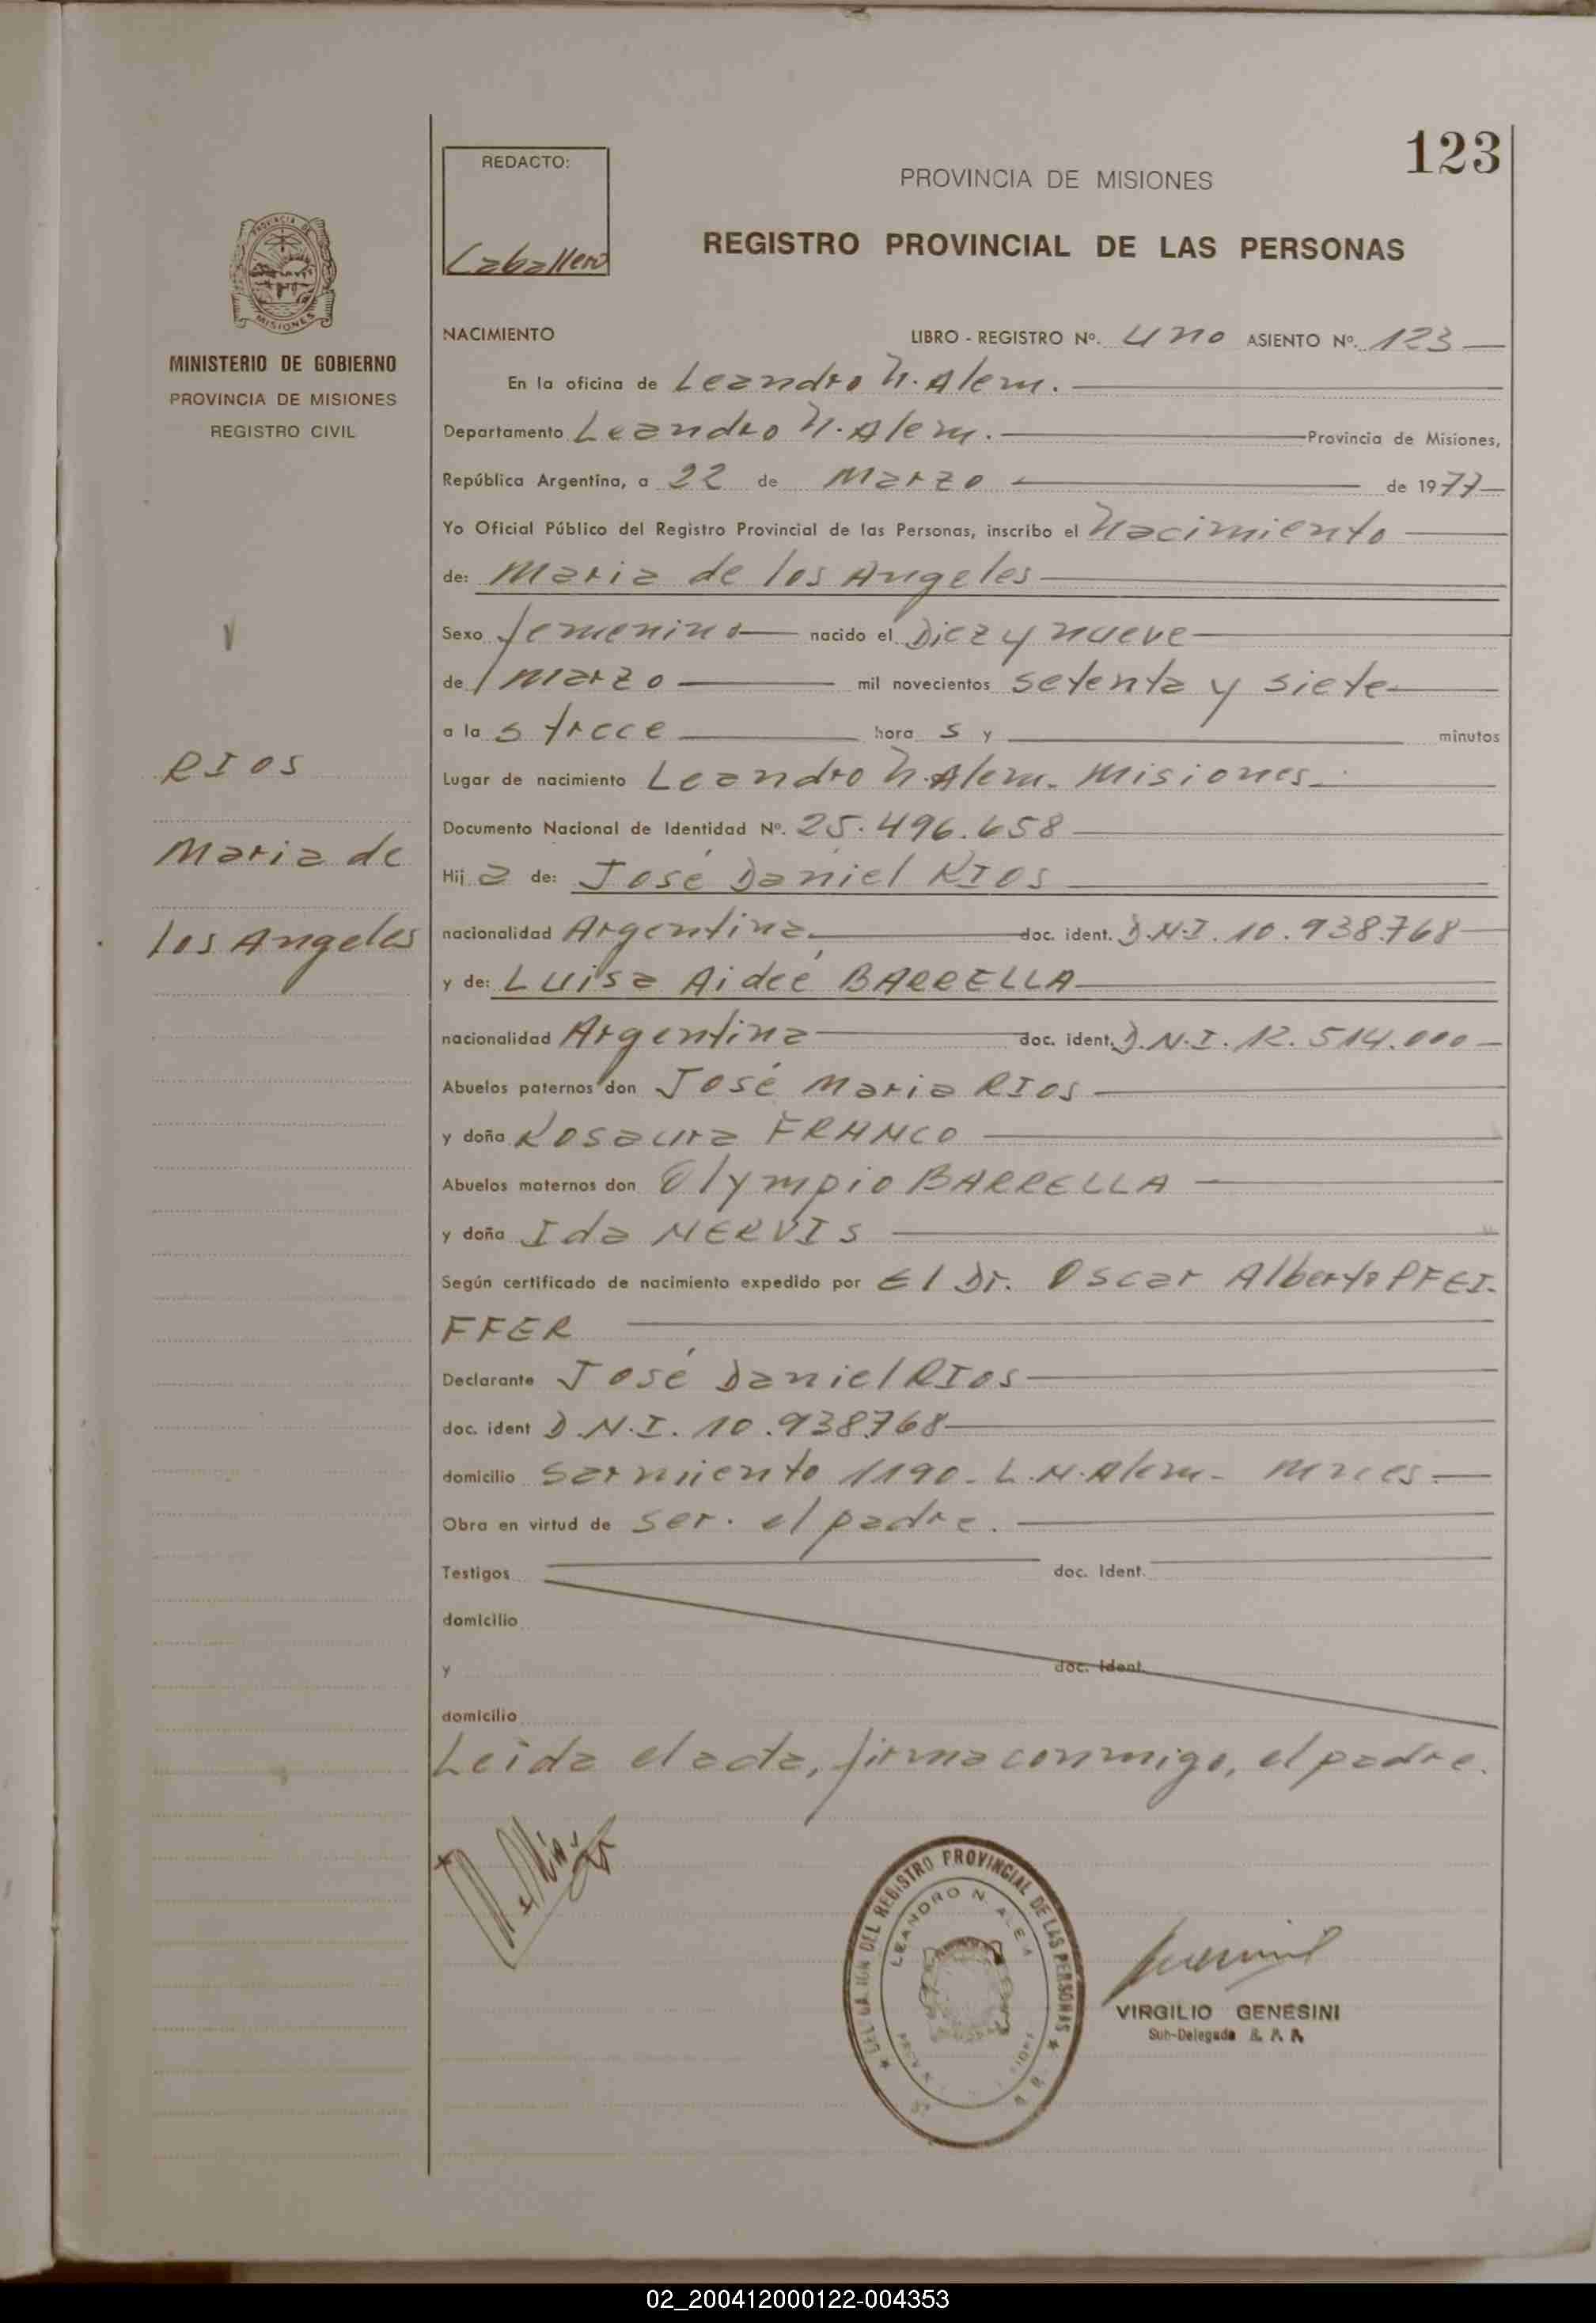 123
REDACTO:
Caballero
PROVINCIA DE MISIONES
REGISTRO PROVINCIAL DE LAS PERSONAS
PROVINCIA DE
MISIONES
MINISTERIO DE GOBIERNO
PROVINCIA DE MISIONES
REGISTRO CIVIL
RIOS
Maria de
los Angeles
NACIMIENTO LIBRO - REGISTRO Nº. Uno ASIENTO Nº. 123
En la oficina de Leandro N. Alem.
Departamento Leandro N. Alem. Provincia de Misiones,
República Argentina, a 22 de Marzo de 1977
Yo Oficial Público del Registro Provincial de las Personas, inscribo el Nacimiento
de: Maria de los Angeles
Sexo femenino nacido el Diez y nueve
de Marzo mil novecientos setenta y siete
a la s trece hora s y minutos
Lugar de nacimiento Leandro N. Alem. Misiones
Documento Nacional de Identidad Nº. 25.496.658
Hij a de: José Daniel RIOS
nacionalidad Argentina doc. ident. D.N.I. 10.938.768
y de: Luisa Aideé BARRELLA
nacionalidad Argentina doc. ident. D.N.I. 12.514.000
Abuelos paternos don José Maria RIOS
y doña Rosaura FRANCO
Abuelos maternos don Olympio BARRELLA
y doña Ida NERVIS
Según certificado de nacimiento expedido por El Dr. Oscar Alberto PFEI-
FFER
Declarante José Daniel RIOS
doc. ident D.N.I. 10.938.768
domicilio Sarmiento 1190 - L.N. Alem - Mnes.
Obra en virtud de ser el padre.
Testigos doc. Ident.
domicilio
y doc. Ident.
domicilio
Leida el acta, firma conmigo, el padre.
DELEGACION DEL REGISTRO PROVINCIAL DE LAS PERSONAS
LEANDRO N. ALEM
VIRGILIO GENESINI
Sub-Delegado R. P. P.
02_200412000122-004353